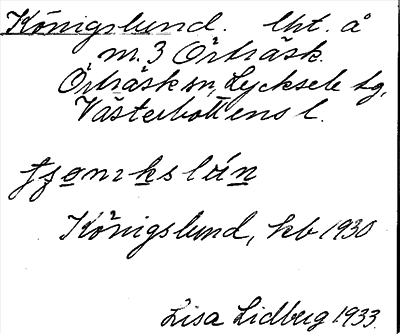 Königslund. lht. å
m. 3 Örträsk.
Örträsk sn, Lycksele tg,
Västerbottens l.
Königslund, kb 1930
Lisa Lidberg 1933.